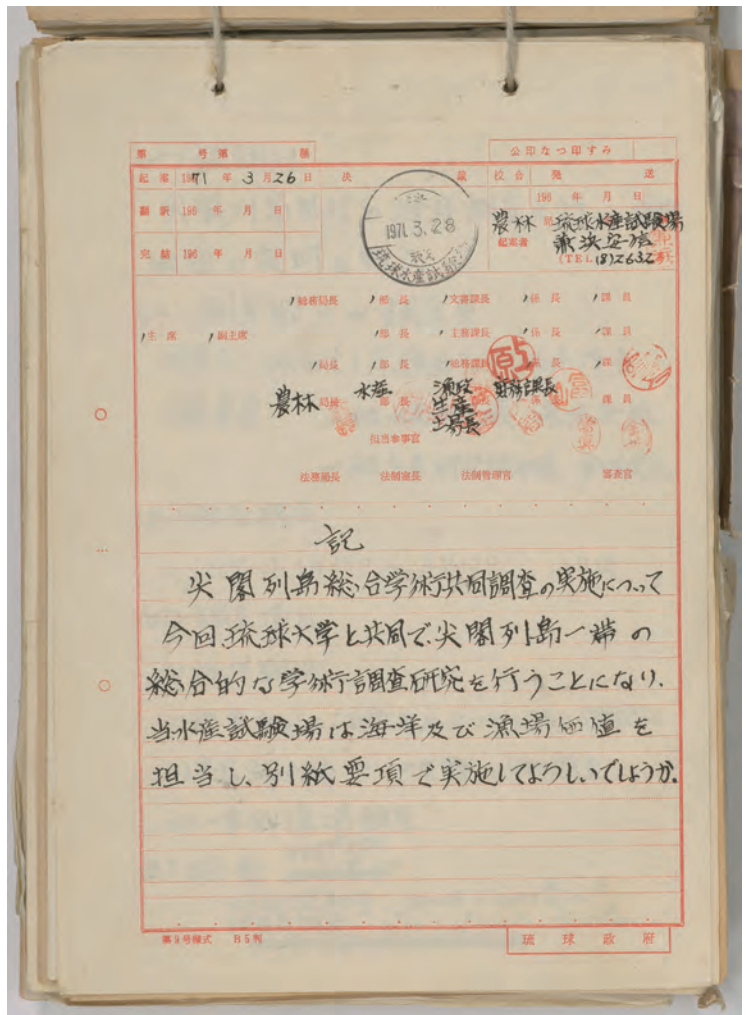 第 号 第 種
公印なつ印すみ
起案 1971 年 3 月 26 日 決 裁 校合 発 送
196 年 月 日
翻訳 196 年 月 日
1971.3.28
琉球水産試験場
農林 琉球水産試験場
起案者
(TEL (8)2632)
完結 196 年 月 日
総務局長 部長 文書課長 係長 課員
主席 副主席 部長 主務課長 係長 課員
局長 部長 総務課長 係長 課員
農林局長 水産部長 漁政 財務課長 課員
生産
主場長
担当参事官
法務局長 法制室長 法制管理官 審査官
記
尖閣列島総合学術共同調査の実施について
今回、琉球大学と共同で、尖閣列島一帯の
総合的な学術調査研究を行うことになり、
当水産試験場は海洋及び漁場価値を
担当し、別紙要項で実施してよろしいでしょうか。
第9号様式 B5判
琉球政府